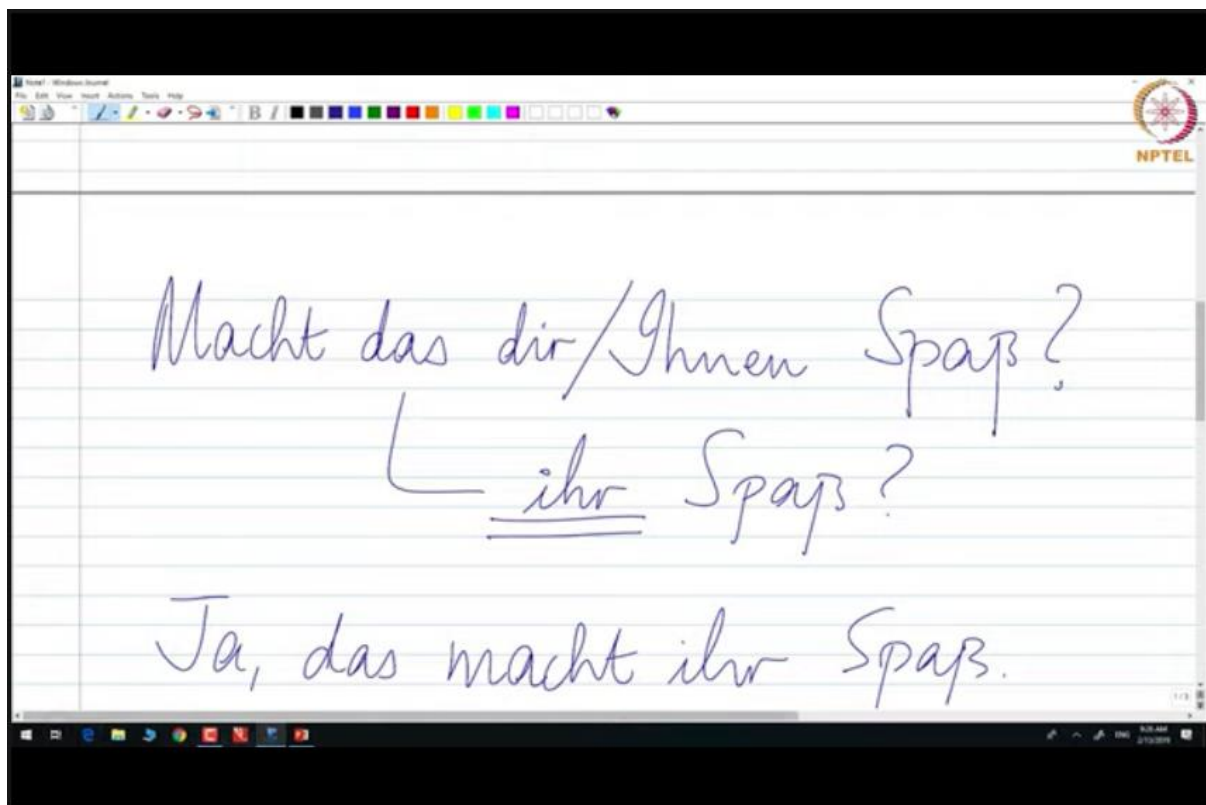 Note1 - Windows Journal
File Edit View Insert Actions Tools Help
B I
NPTEL
Macht das dir/Ihnen Spaß?
ihr Spaß?
Ja, das macht ihr Spaß.
1/3
ENG
9:28 AM
2/13/2019